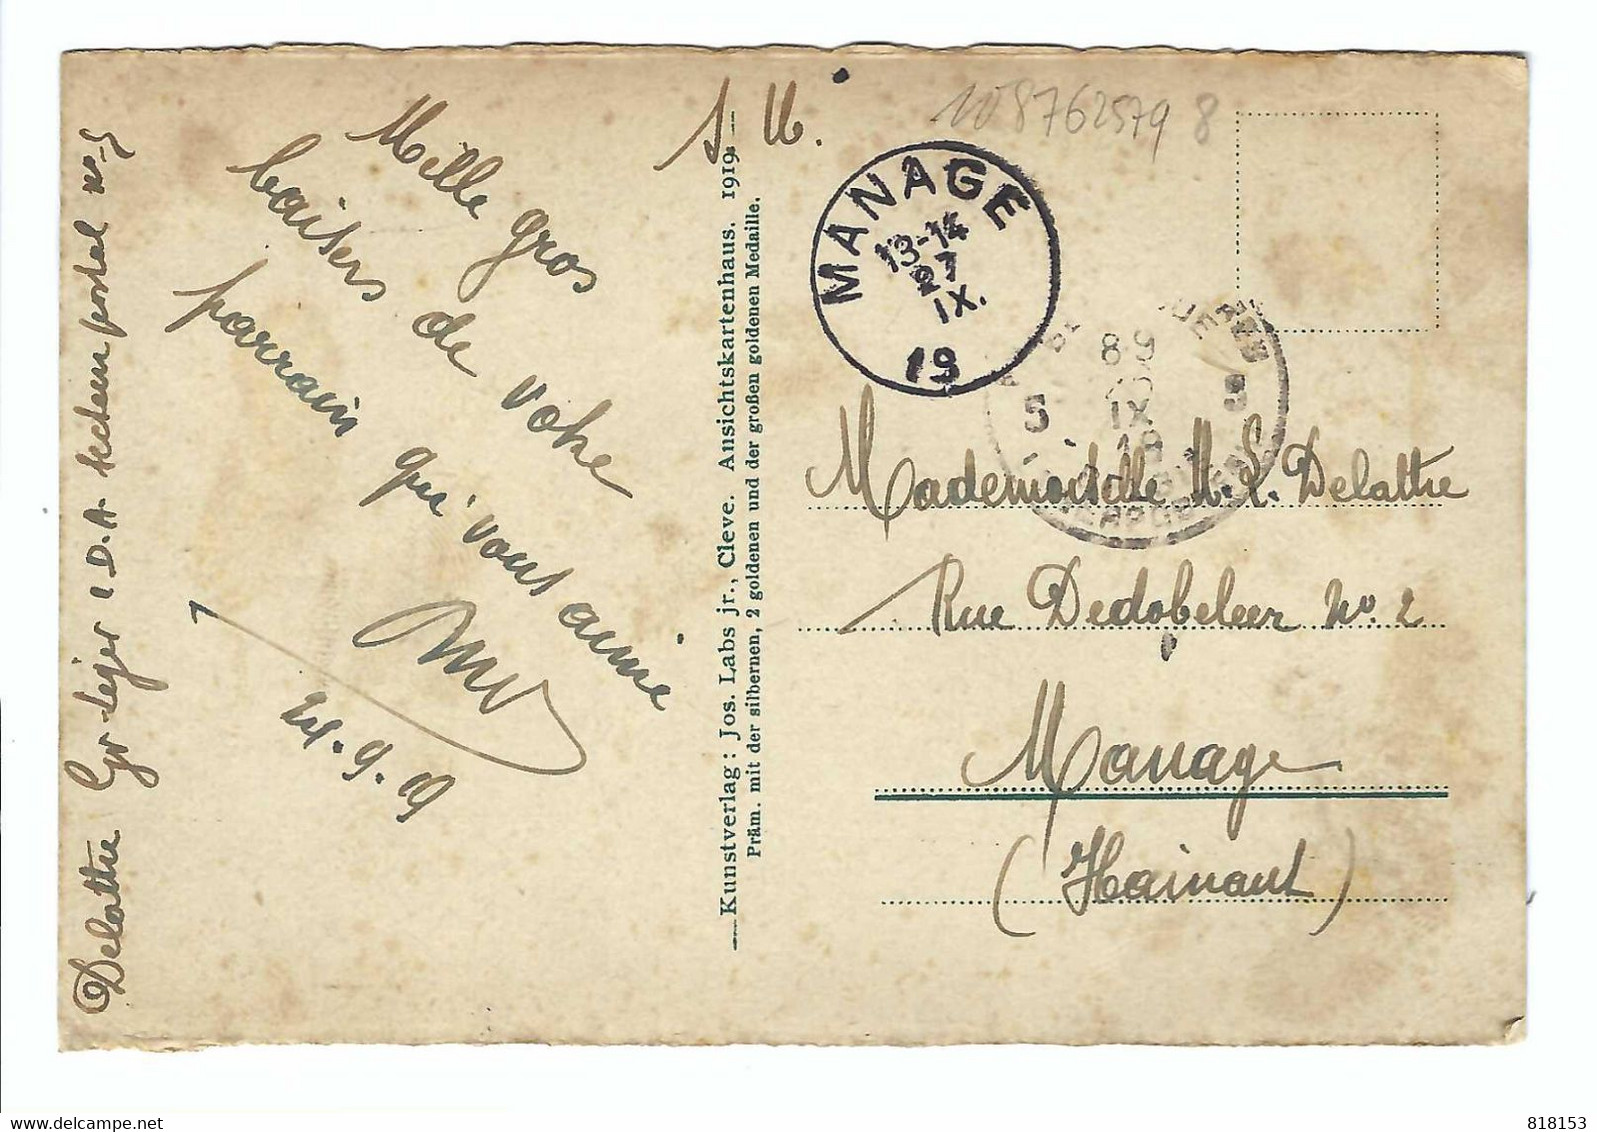 S. M.
108762579 8
Mille gros
baisers de votre
parrain qui vous aime
24.9.19
Delattre Gr léger 1 D.A. Secteur postal No 5
Kunstverlag: Jos. Labs jr., Cleve. Ansichtskartenhaus. 1919.
Präm. mit der silbernen, 2 goldenen und der großen goldenen Medaille.
MANAGE
13-14
27
IX.
19
89
IX
19
5 5
Mademoiselle M. L. Delattre
Rue Dedobeleer No. 2
Manage
(Hainaut)
818153